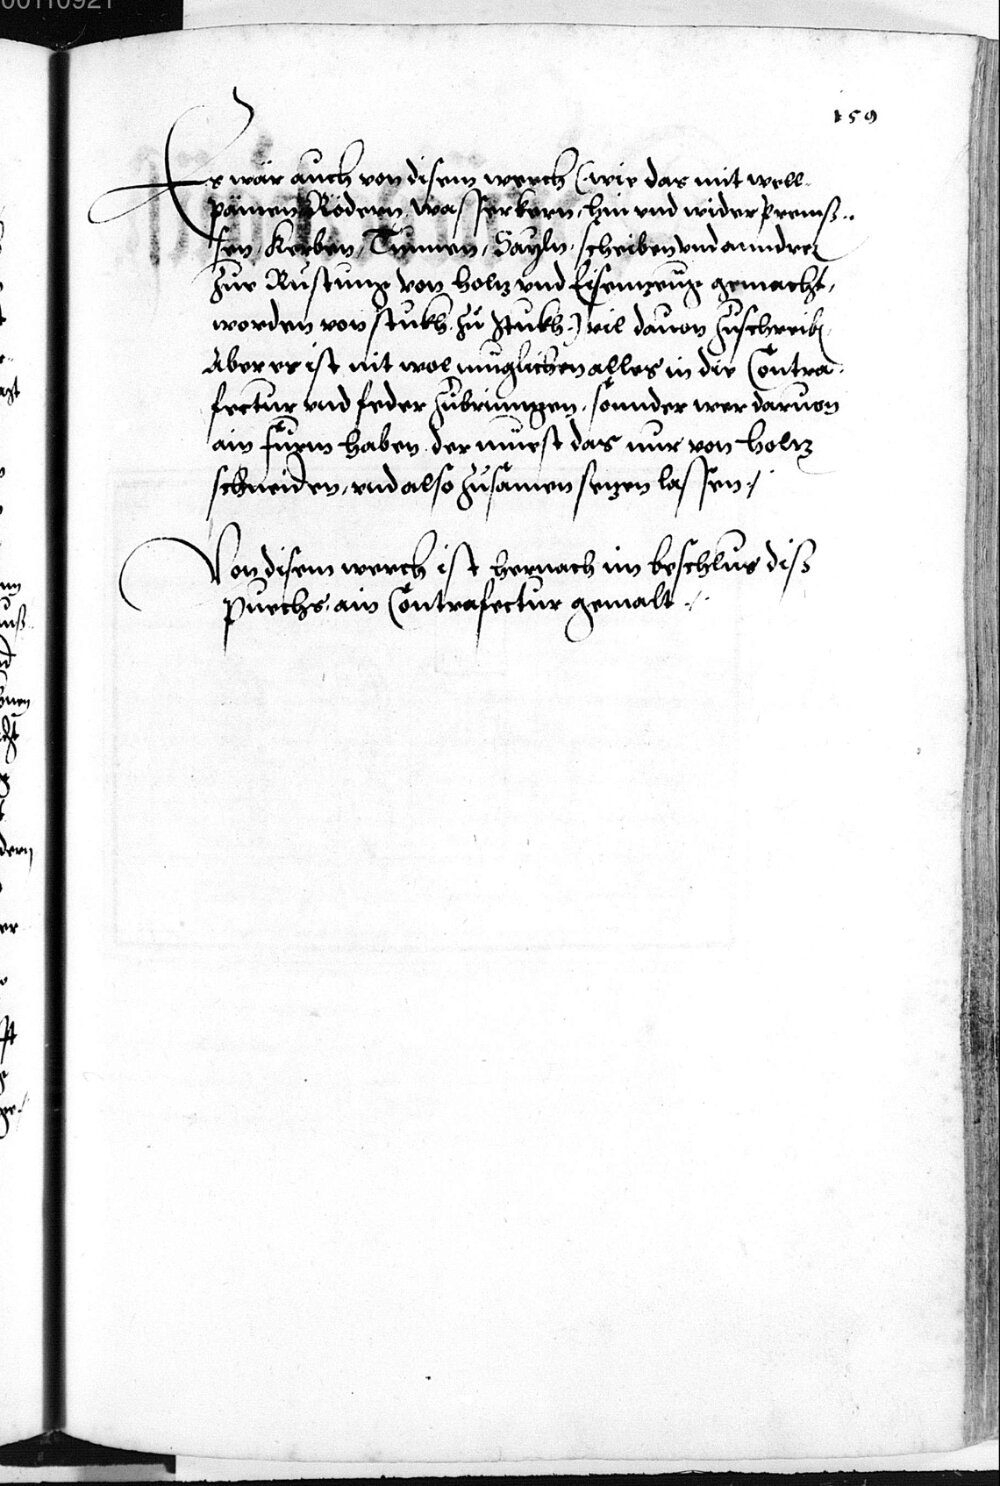 159
Es wär auch von disem werch (wie das mit well-
pämen Rödern, wasserkern, hin und wider premß-
sen, Kerben, Tunnen, Sayln, scheiben und anndrer
Zur Rustung von holtz und Eisenzeug gemacht,
worden von stukh zu stukh) vil davon zuschreibn
Aber es ist nit wol muglichen alles in die Contra-
fectur und feder zubringen, sonnder wer darvon
ain furm haben, der muest das nur von holtz
schneiden, und also zusamen setzen lassen.
Von disem werch ist hernach im beschlus diß
Puechs ain Contrafectur gemalt.